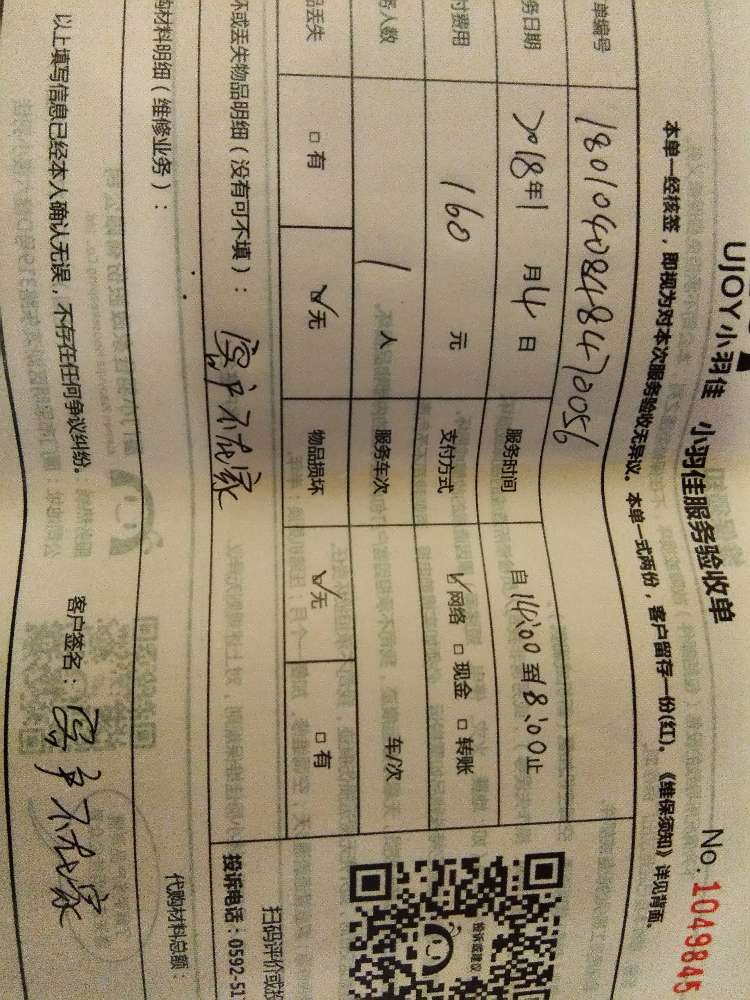 UJOY小羽佳 小羽佳服务验收单 No:1049845
本单一经核签，即视为对本次服务验收无异议。本单一式两份，客户留存一份(红)。《维保须知》详见背面。
单编号 1801040848472056
务日期 2018年1月4日 服务时间 自14:00到18:00止
付费用 160元 支付方式 ☑网络 □现金 □转账
务人数 1人 服务车次 车/次
品丢失 □有 ☑无 物品损坏 ☑无 □有
坏或丢失物品明细（没有可不填）： 客户不在家
投诉或建议
扫码评价或投
投诉电话：0592-51
购材料明细（维修业务）：
代购材料总额：
以上填写信息已经本人确认无误，不存在任何争议纠纷。 客户签名：客户不在家